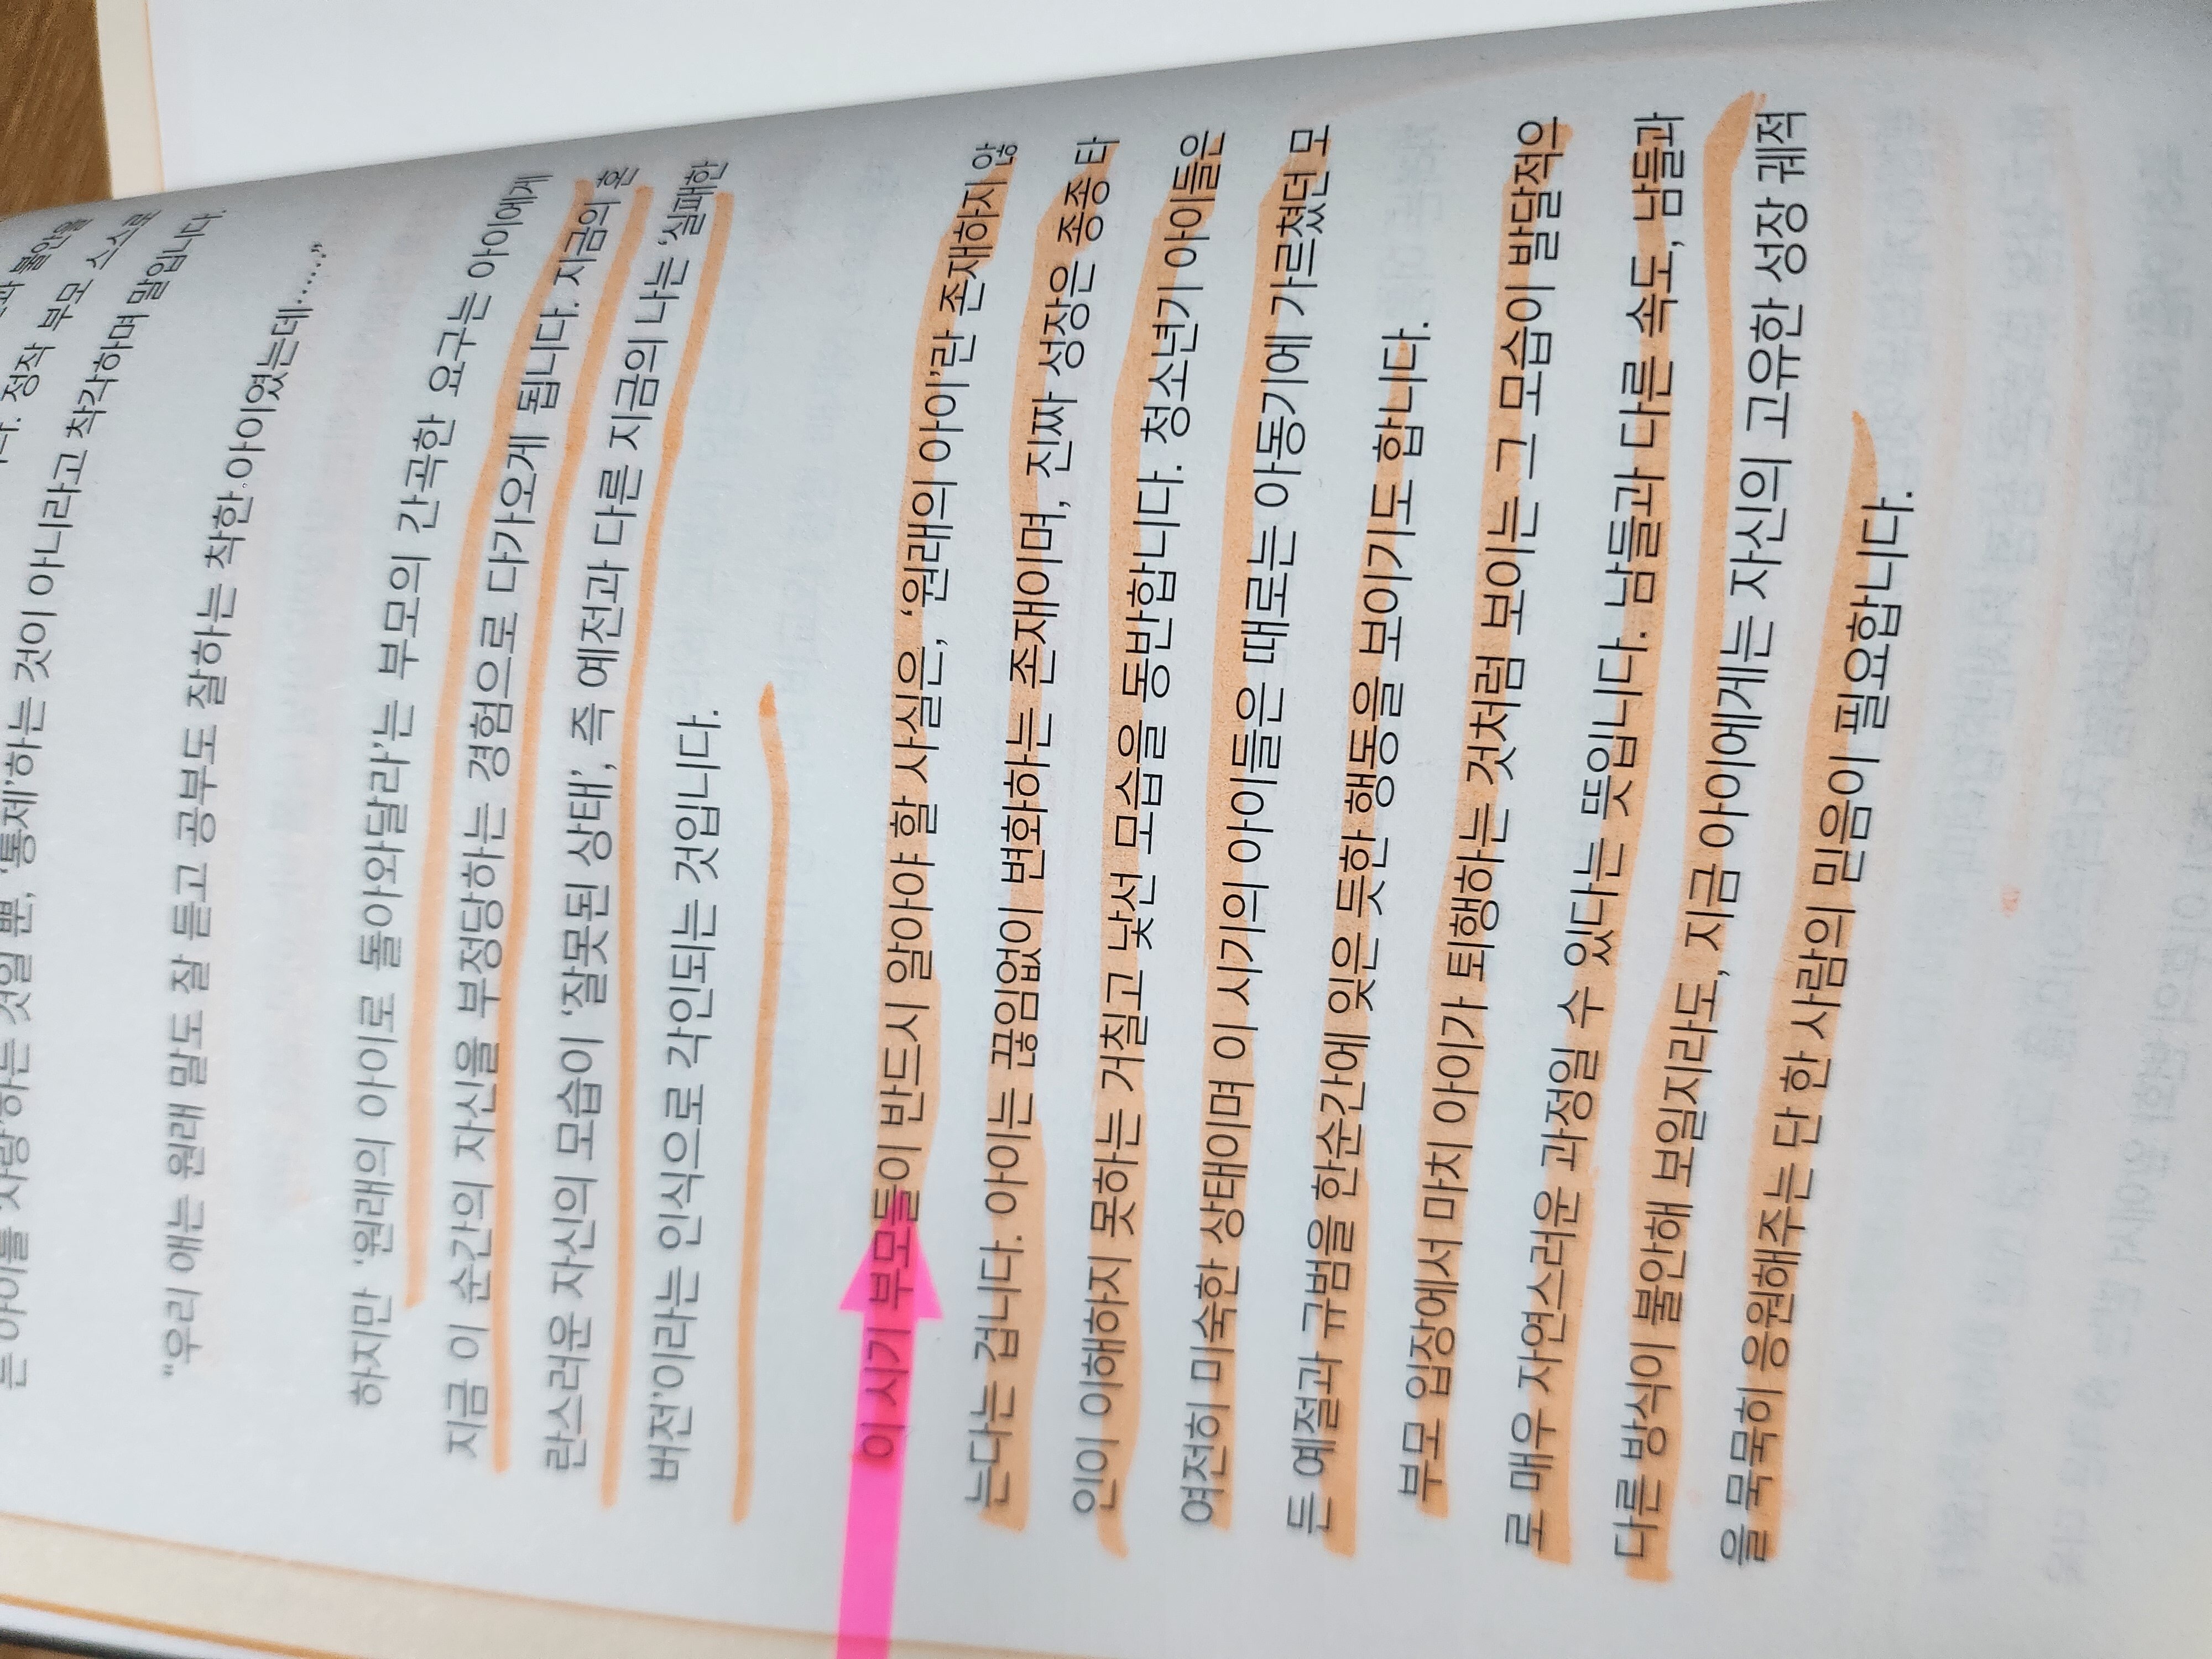 정작 부모 스스로
는 아이를 '사랑'하는 것일 뿐, '통제'하는 것이 아니라고 착각하며 말입니다.
"우리 애는 원래 말도 잘 듣고 공부도 잘하는 착한 아이였는데……"
하지만 '원래의 아이로 돌아와달라'는 부모의 간곡한 요구는 아이에게
지금 이 순간의 자신을 부정당하는 경험으로 다가오게 됩니다. 지금의 혼
란스러운 자신의 모습이 '잘못된 상태', 즉 예전과 다른 지금의 나는 '실패한
버전'이라는 인식으로 각인되는 것입니다.
이 시기 부모들이 반드시 알아야 할 사실은, '원래의 아이'란 존재하지 않
는다는 겁니다. 아이는 끊임없이 변화하는 존재이며, 진짜 성장은 종종 타
인이 이해하지 못하는 거칠고 낯선 모습을 동반합니다. 청소년기 아이들은
여전히 미숙한 상태이며 이 시기의 아이들은 때로는 아동기에 가르쳤던 모
든 예절과 규범을 한순간에 잊은 듯한 행동을 보이기도 합니다.
부모 입장에서 마치 아이가 퇴행하는 것처럼 보이는 그 모습이 발달적으
로 매우 자연스러운 과정일 수 있다는 뜻입니다. 남들과 다른 속도, 남들과
다른 방식이 불안해 보일지라도, 지금 아이에게는 자신의 고유한 성장 궤적
을 묵묵히 응원해주는 단 한 사람의 믿음이 필요합니다.